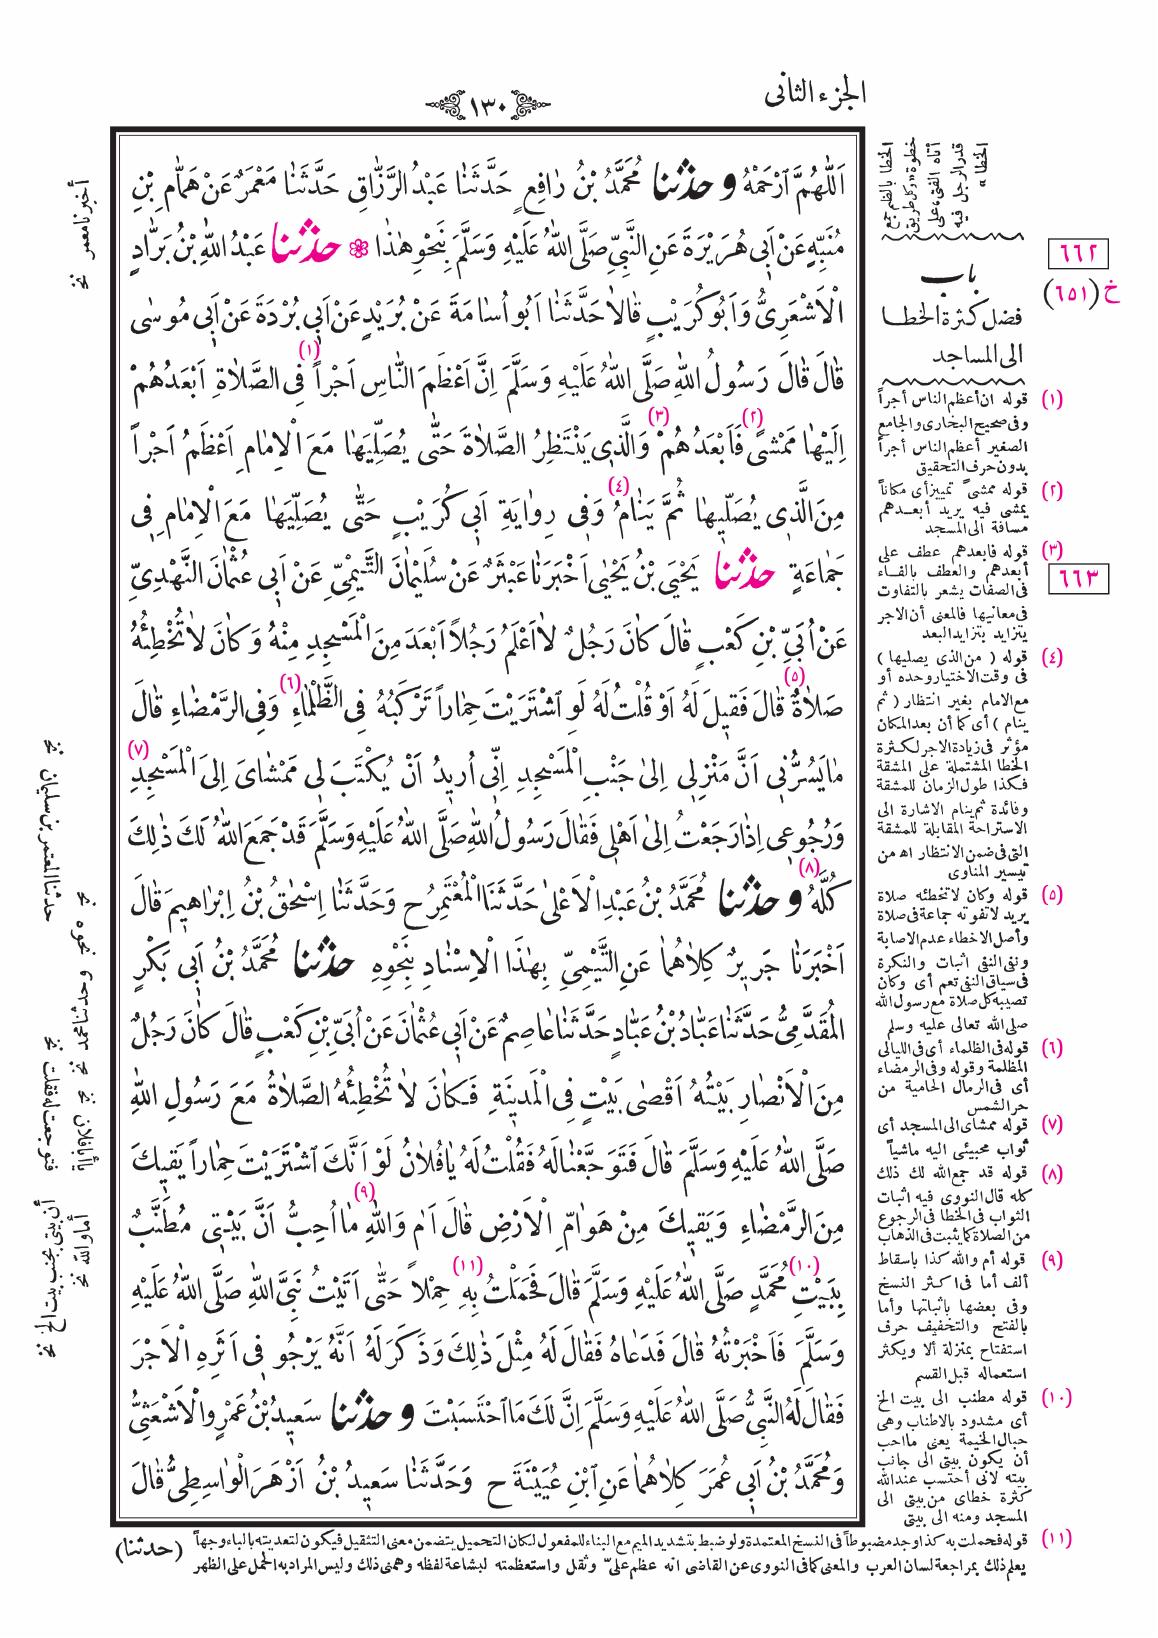 الجزء الثانى
١٣٠
اَللّٰهُمَّ ٱرْحَمْهُ وحدثنا مُحَمَّدُ بْنُ رَافِعٍ حَدَّثَنَا عَبْدُ الرَّزَّاقِ حَدَّثَنَا مَعْمَرٌ عَنْ هَمَّامِ بْنِ
مُنَبِّهٍ عَنْ اَبِى هُرَيْرَةَ عَنِ النَّبِيِّ صَلَّى اللهُ عَلَيْهِ وَسَلَّمَ بِنَحْوِ هٰذَا ❁ حدثنا عَبْدُ اللهِ بْنُ بَرَّادٍ
الْاَشْعَرِىُّ وَاَبُو كُرَيْبٍ قَالَا حَدَّثَنَا اَبُو اُسَامَةَ عَنْ بُرَيْدٍ عَنْ اَبِى بُرْدَةَ عَنْ اَبِى مُوسٰى
قَالَ قَالَ رَسُولُ اللهِ صَلَّى اللهُ عَلَيْهِ وَسَلَّمَ اِنَّ اَعْظَمَ النَّاسِ اَجْراً (١) فِى الصَّلَاةِ اَبْعَدُهُمْ
اِلَيْهَا مَمْشًى (٢) فَاَبْعَدُهُمْ (٣) وَالَّذِى يَنْتَظِرُ الصَّلَاةَ حَتّٰى يُصَلِّيَهَا مَعَ الْاِمَامِ اَعْظَمُ اَجْراً
مِنَ الَّذِى يُصَلِّيهَا ثُمَّ يَنَامُ (٤) وَفِى رِوَايَةِ اَبِى كُرَيْبٍ حَتّٰى يُصَلِّيَهَا مَعَ الْاِمَامِ فِى
جَمَاعَةٍ حدثنا يَحْيَى بْنُ يَحْيٰى اَخْبَرَنَا عَبْثَرٌ عَنْ سُلَيْمَانَ التَّيْمِىِّ عَنْ اَبِى عُثْمَانَ النَّهْدِىِّ
عَنْ اُبَىِّ بْنِ كَعْبٍ قَالَ كَانَ رَجُلٌ لَا اَعْلَمُ رَجُلاً اَبْعَدَ مِنَ الْمَسْجِدِ مِنْهُ وَكَانَ لَا تُخْطِئُهُ
صَلَاةٌ (٥) قَالَ فَقِيلَ لَهُ اَوْ قُلْتُ لَهُ لَوِ ٱشْتَرَيْتَ حِمَاراً تَرْكَبُهُ فِى الظَّلْمَاءِ (٦) وَفِى الرَّمْضَاءِ قَالَ
مَا يَسُرُّنِى اَنَّ مَنْزِلِى اِلٰى جَنْبِ الْمَسْجِدِ اِنِّى اُرِيدُ اَنْ يُكْتَبَ لِى مَمْشَاىَ اِلَى الْمَسْجِدِ (٧)
وَرُجُوعِى اِذَا رَجَعْتُ اِلٰى اَهْلِى فَقَالَ رَسُولُ اللهِ صَلَّى اللهُ عَلَيْهِ وَسَلَّمَ قَدْ جَمَعَ اللهُ لَكَ ذٰلِكَ
كُلَّهُ (٨) وحدثنا مُحَمَّدُ بْنُ عَبْدِ الْاَعْلٰى حَدَّثَنَا الْمُعْتَمِرُ ح وَحَدَّثَنَا اِسْحٰقُ بْنُ اِبْرَاهِيمَ قَالَ
اَخْبَرَنَا جَرِيرٌ كِلَاهُمَا عَنِ التَّيْمِىِّ بِهٰذَا الْاِسْنَادِ بِنَحْوِهِ حدثنا مُحَمَّدُ بْنُ اَبِى بَكْرٍ
الْمُقَدَّمِىُّ حَدَّثَنَا عَبَّادُ بْنُ عَبَّادٍ حَدَّثَنَا عَاصِمٌ عَنْ اَبِى عُثْمَانَ عَنْ اُبَىِّ بْنِ كَعْبٍ قَالَ كَانَ رَجُلٌ
مِنَ الْاَنْصَارِ بَيْتُهُ اَقْصٰى بَيْتٍ فِى الْمَدِينَةِ فَكَانَ لَا تُخْطِئُهُ الصَّلَاةُ مَعَ رَسُولِ اللهِ
صَلَّى اللهُ عَلَيْهِ وَسَلَّمَ قَالَ فَتَوَجَّعْنَا لَهُ فَقُلْتُ لَهُ يَا فُلَانُ لَوْ اَنَّكَ ٱشْتَرَيْتَ حِمَاراً يَقِيكَ
مِنَ الرَّمْضَاءِ وَيَقِيكَ مِنْ هَوَامِّ الْاَرْضِ قَالَ اَمَ وَاللهِ (٩) مَا اُحِبُّ اَنَّ بَيْتِى مُطَنَّبٌ
بِبَيْتِ (١٠) مُحَمَّدٍ صَلَّى اللهُ عَلَيْهِ وَسَلَّمَ قَالَ فَحَمَلْتُ بِهِ (١١) حِمْلاً حَتّٰى اَتَيْتُ نَبِىَّ اللهِ صَلَّى اللهُ عَلَيْهِ
وَسَلَّمَ فَاَخْبَرْتُهُ قَالَ فَدَعَاهُ فَقَالَ لَهُ مِثْلَ ذٰلِكَ وَذَكَرَ لَهُ اَنَّهُ يَرْجُو فِى اَثَرِهِ الْاَجْرَ
فَقَالَ لَهُ النَّبِىُّ صَلَّى اللهُ عَلَيْهِ وَسَلَّمَ اِنَّ لَكَ مَا ٱحْتَسَبْتَ وحدثنا سَعِيدُ بْنُ عَمْرٍو الْاَشْعَثِىُّ
وَمُحَمَّدُ بْنُ اَبِى عُمَرَ كِلَاهُمَا عَنِ ٱبْنِ عُيَيْنَةَ ح وَحَدَّثَنَا سَعِيدُ بْنُ اَزْهَرَ الْوَاسِطِىُّ قَالَ
الخطا بالظم جمع
خطوة وكل طريق
أتاه الفتى على
قدر الرجل فيه
الخطا »
باب
فضل كثرة الخطا
الى المساجد
٦٦٢
خ (٦٥١)
٦٦٣
(١) قوله ان أعظم الناس أجراً
وفى صحيح البخارى والجامع
الصغير أعظم الناس أجراً
بدون حرف التحقيق
(٢) قوله ممشىً تمييز أى مكاناً
يمشى فيه يريد أبعدهم
مسافة الى المسجد
(٣) قوله فابعدهم عطف على
أبعدهم والعطف بالفاء
فى الصفات يشعر بالتفاوت
فى معانيها فالمعنى أن الاجر
يتزايد بتزايد البعد
(٤) قوله ( من الذى يصليها )
فى وقت الاختيار وحده أو
مع الامام بغير انتظار ( ثم
ينام ) أى كما أن بعد المكان
مؤثر فى زيادة الاجر لكثرة
الخطا المشتملة على المشقة
فكذا طول الزمان للمشقة
وفائدة ثم ينام الاشارة الى
الاستراحة المقابلة للمشقة
التى فى ضمن الانتظار اه من
تيسير المناوى
(٥) قوله وكان لا تخطئه صلاة
يريد لا تفوته جماعة فى صلاة
وأصل الاخطاء عدم الاصابة
ونفى النفى اثبات والنكرة
فى سياق النفى تعم أى وكان
تصيبه كل صلاة مع رسول الله
صلى الله تعالى عليه وسلم
(٦) قوله فى الظلماء أى فى الليالى
المظلمة وقوله وفى الرمضاء
أى فى الرمال الحامية من
حر الشمس
(٧) قوله ممشاى الى المسجد أى
ثواب مجيئى اليه ماشياً
(٨) قوله قد جمع الله لك ذلك
كله قال النووى فيه اثبات
الثواب فى الخطا فى الرجوع
من الصلاة كما يثبت فى الذهاب
(٩) قوله أم والله كذا باسقاط
ألف أما فى اكثر النسخ
وفى بعضها باثباتها وأما
بالفتح والتخفيف حرف
استفتاح بمنزلة ألا ويكثر
استعماله قبل القسم
(١٠) قوله مطنب الى بيت الخ
أى مشدود بالاطناب وهى
حبال الخيمة يعنى ما احب
أن يكون بيتى الى جانب
بيته لانى أحتسب عند الله
كثرة خطاى من بيتى الى
المسجد ومنه الى بيتى
(١١) قوله فحملت به كذا وجد مضبوطاً فى النسخ المعتمدة ولو ضبط بتشديد الميم مع البناء للمفعول لكان التحميل بتضمن معنى التثقيل فيكون لتعديته بالباء وجهاً
يعلم ذلك بمراجعة لسان العرب والمعنى كما فى النووى عن القاضى انه عظم علىّ وثقل واستعظمته لبشاعة لفظه وهمنى ذلك وليس المراد به الحمل على الظهر
(حدثنا)
أخبرنا معمر نخ
حدثنا المعتمر بن سليمان نخ
نحوه نخ
وحدثنا محمد نخ
يا أبا فلان نخ
فتوجعت له فقلت نخ
أما والله نخ
أن بيتى بجنب بيت الخ نخ